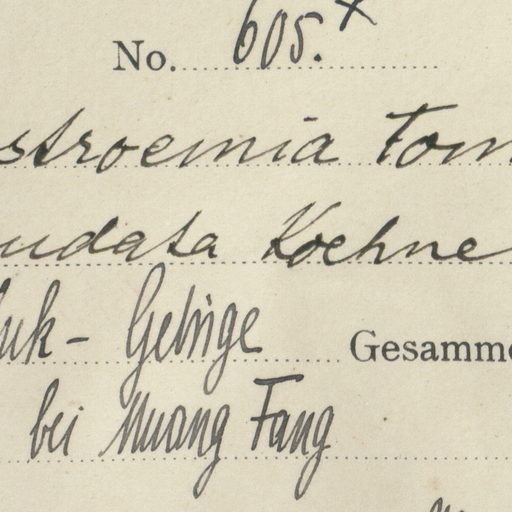 No. 605.x
stroemia Tom
udata Koehne
uk - Gebirge Gesamme
bei Muang Fang